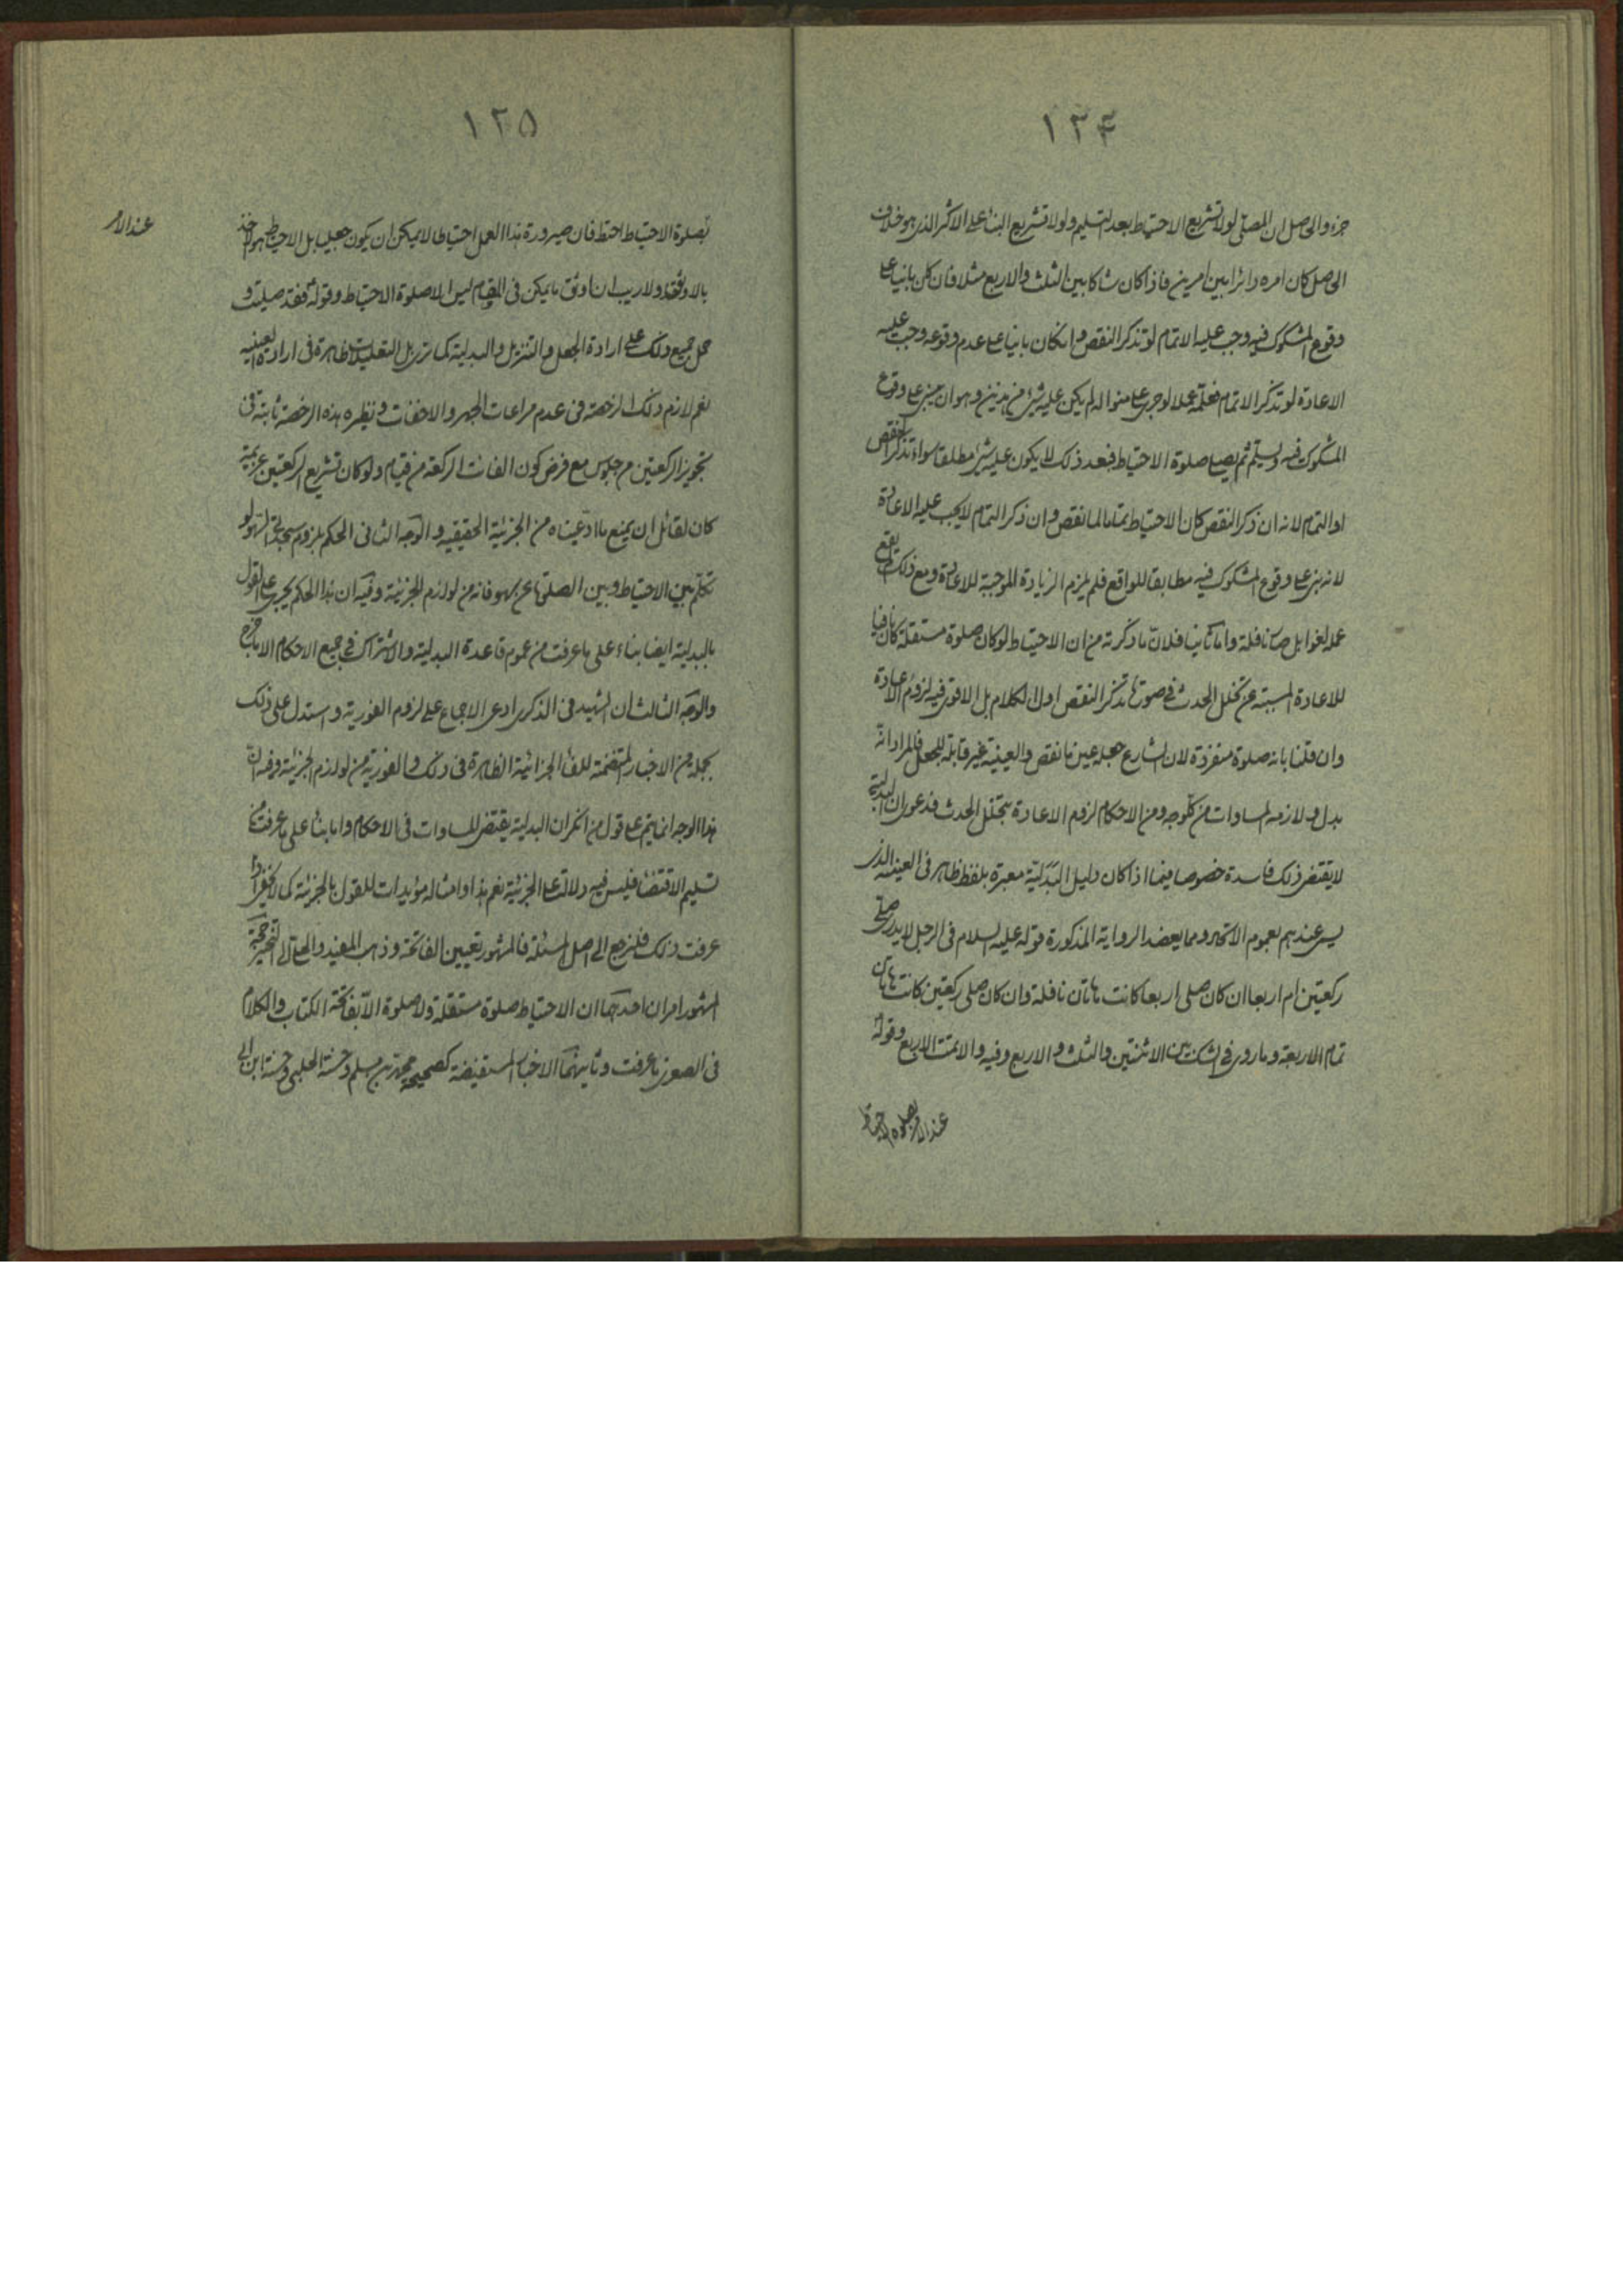 ١٢۴
جزء والحاصل ان المصلّى لولا تشريع الاحتياط بعد التسليم ولولا تشريع البناء على الاكثر الذى هو خلاف
الاصل كان امره دائرا بين امرين فاذا كان شاكا بين الثلث والاربع مثلا فان كان بانيا على
وقوع المشكوك فيه وجب عليه الاتمام لو تذكر النقص وان كان بانيا على عدم وقوعه وجب عليه
الاعادة لو تذكر الاتمام فعلّمه عملا لو جرى على منواله لم يكن عليه شئ من هذين وهو ان يبنى على وقوع
المشكوك فيه ويسلّم ثم يصلى صلوة الاحتياط فبعد ذلك لا يكون عليه شئ مطلقا سواء تذكر النقص
او التمام لانه ان ذكر النقص كان الاحتياط تماما لما نقص وان ذكر التمام لا يجب عليه الاعادة
لانه بنى على وقوع المشكوك فيه مطابقا للواقع فلم يلزم الزيادة الموجبة للاعادة ومع ذلك يقع
عمله لغوا بل صار نافلة واما ثانيا فلانّ ما ذكرته من ان الاحتياط لو كان صلوة مستقلة كان نافيا
للاعادة المسببة عن تخلل الحدث فى صورة تذكر النقص اول الكلام بل الاقوى فيه لزوم الاعادة
وان قلنا بانه صلوة منفردة لان الشارع جعله عين ما نقص والعينية غير قابلة للجعل فالمراد انه
بدل ولازمه المساوات من كل وجه ومن الاحكام لزوم الاعادة بتخلل الحدث فدعوى ان البدلية
لا يقتضى ذلك فاسدة خصوصا فيما اذا كان دليل البدلية معبرة بلفظ ظاهر فى العينية الذى
ليس عندهم بعموم الاتحاد ومما يعضد الرواية المذكورة قوله عليه السلام فى الرجل لا يدرى صلى
ركعتين ام اربعا ان كان صلى اربعا كانت هاتان نافلة وان كان صلى ركعتين كانت هاتان
تمام الاربعة وما روى فى الشك بين الاثنتين والثلث والاربع وفيه والا تمت الاربع وقوله
عند الامر بصلوة الاحتياط
١٢۵
بصلوة الاحتياط احتط فان صيرورة هذا العمل احتياطا لا يمكن ان يكون بجعل بل الاحتياط هو الاخذ
بالاوثق ولا ريب ان اوثق ما يمكن فى المقام ليس الا صلوة الاحتياط وقوله فقد صليت و
حمل جميع ذلك على ارادة الجعل والتنزيل والبدلية كما ترى بل التعليلات ظاهرة فى ارادة العينية
نعم لازم ذلك الرخصة فى عدم مراعات الجهر والاخفات ونظيره هذه الرخصة ثابتة فى
تجويز الركعتين من جلوس مع فرض كون الفائت الركعة من قيام ولو كان تشريع الركعتين عزيمة
كان لقائل ان يمنع ما ادّعيناه من الجزئية الحقيقيه والوجه الثانى الحكم بلزوم سجدتى السهو لو
تكلّم بين الاحتياط وبين الصلوة عن سهو فانه من لوازم الجزئية وفيه ان هذا الحكم يجرى على القول
بالبدلية ايضا بناء على ما عرفت من عموم قاعدة البدلية والاشتراك فى جميع الاحكام الا ما خرج
والوجه الثالث ان الشهيد فى الذكرى ادعى الاجماع على لزوم الفورية واستدل على ذلك
بجملة من الاخبار المتضمنة للفاء الجزائية الظاهرة فى ذلك والفورية من لوازم الجزئية وفيه انّ
هذا الوجه انما يتم على قول من انكر ان البدلية يقتضى المساوات فى الاحكام واما بناء على ما عرفت من
تسليم الاقتضاء فليس فيه دلالة على الجزئية نعم هذا وامثاله مؤيدات للقول بالجزئية كما لا يخفى اذا
عرفت ذلك فلنرجع الى اصل المسئلة فالمشهور تعيين الفاتحة وذهب المفيد والحلى الى التخيير حجة
المشهور امران احدهما ان الاحتياط صلوة مستقلة ولا صلوة الّا بفاتحة الكتاب والكلام
فى الصغرى ما عرفت وثانيهما الاخبار المستفيضة كصحيحة محمد بن مسلم وحسنة الحلبى وحسنة ابن ابى
عند الامر